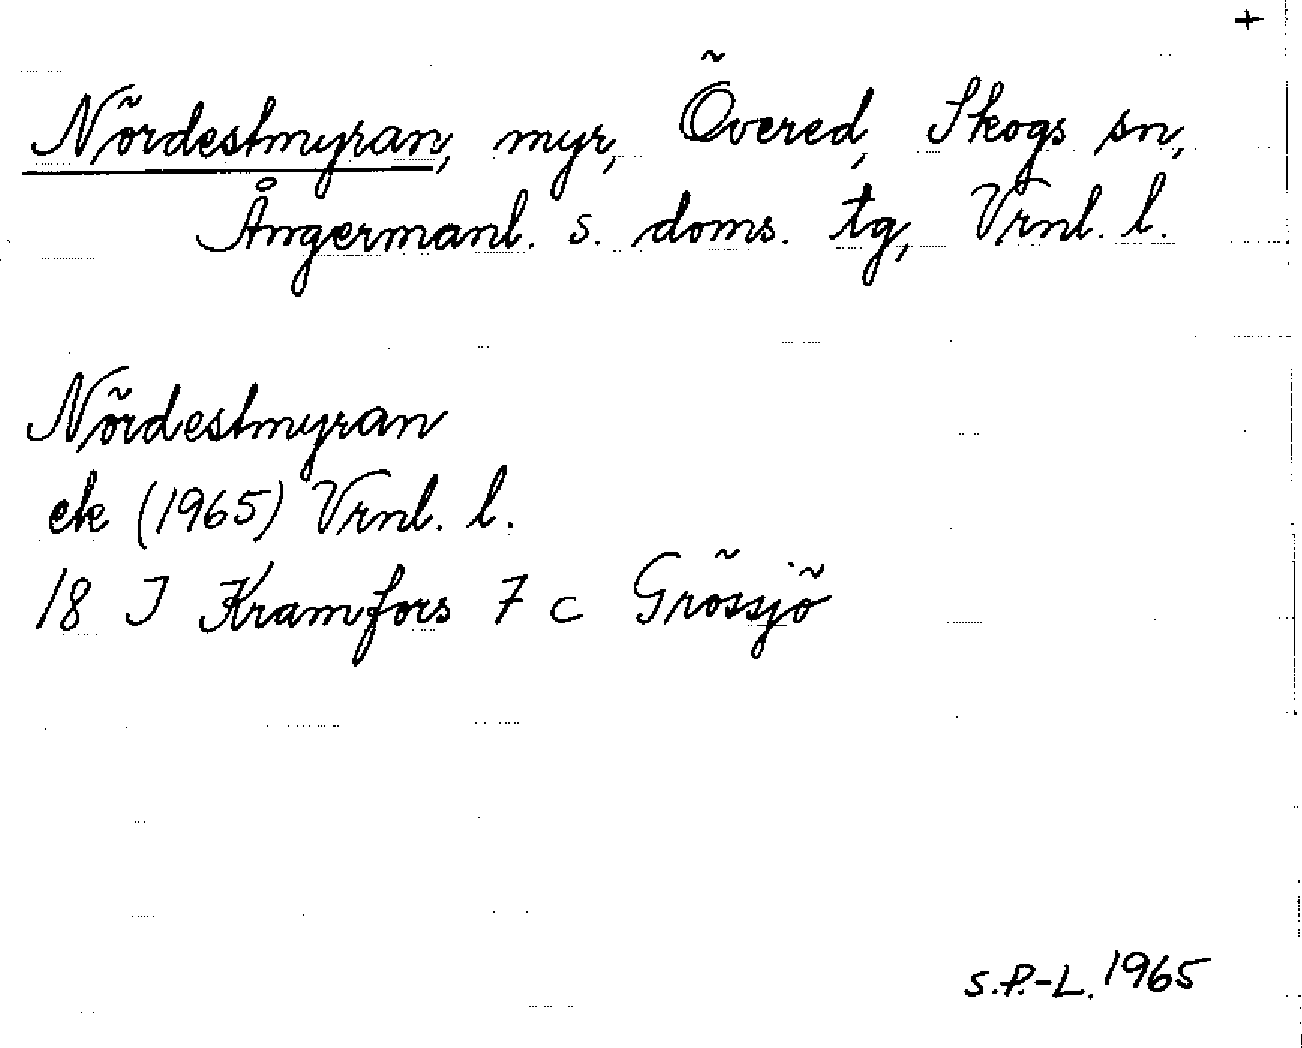 +
Nördestmyran, myr, Övered, Skogs sn,
Ångermanl. s. doms. tg, Vrnl. l.
Nördestmyran
ek (1965) Vrnl. l.
18 J Kramfors 7 c Grössjö
S.P.-L. 1965